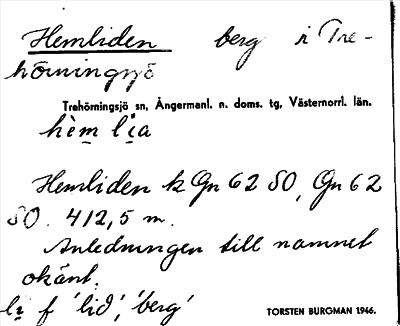 Hemliden berg i Tre-
hörningsjö
Trehörningsjö sn, Ångermanl. n. doms. tg, Västernorrl. län.
hèm lia
Hemliden k Gn 62 SO, Gn 62
SO. 412,5 m.
Anledningen till namnet
okänt.
li f 'lid', 'berg'
TORSTEN BURGMAN 1946.